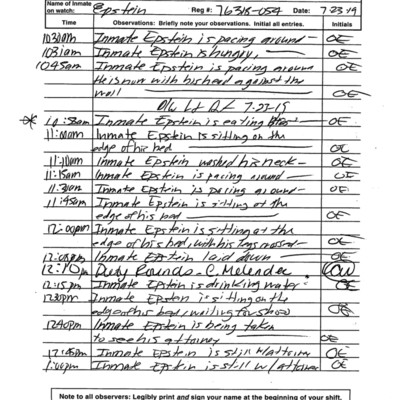 Name of Inmate on watch: Epstein Reg #: 76318-054 Date: 7-23-19
Time Observations: Briefly note your observations. Initial all entries. Initials
10:30am Inmate Epstein is pacing around OE
Inmate Epstein is hungry, OE
10:45am Inmate Epstein is pacing around
with his head against the
wall OE
7-23-19
Inmate Epstein is eating OE
11:00am Inmate Epstein is sitting on the
edge of his bed OE
11:10am Inmate Epstein washed his neck OE
11:15am Inmate Epstein is pacing around OE
11:30am Inmate Epstein is pacing around OE
11:45am Inmate Epstein is sitting at the
edge of his bed OE
12:00pm Inmate Epstein is sitting at the
edge of his bed, with his legs OE
Inmate Epstein laid down OE
Duty Rounds - C.
12:15pm Inmate Epstein is drinking water OE
12:30pm Inmate Epstein is sitting on the
edge of his bed, waiting for OE
12:40pm Inmate Epstein is being taken
to see his attorney OE
Inmate Epstein is still w/attorney OE
1:00pm Inmate Epstein is still w/attorney OE
Note to all observers: Legibly print and sign your name at the beginning of your shift.